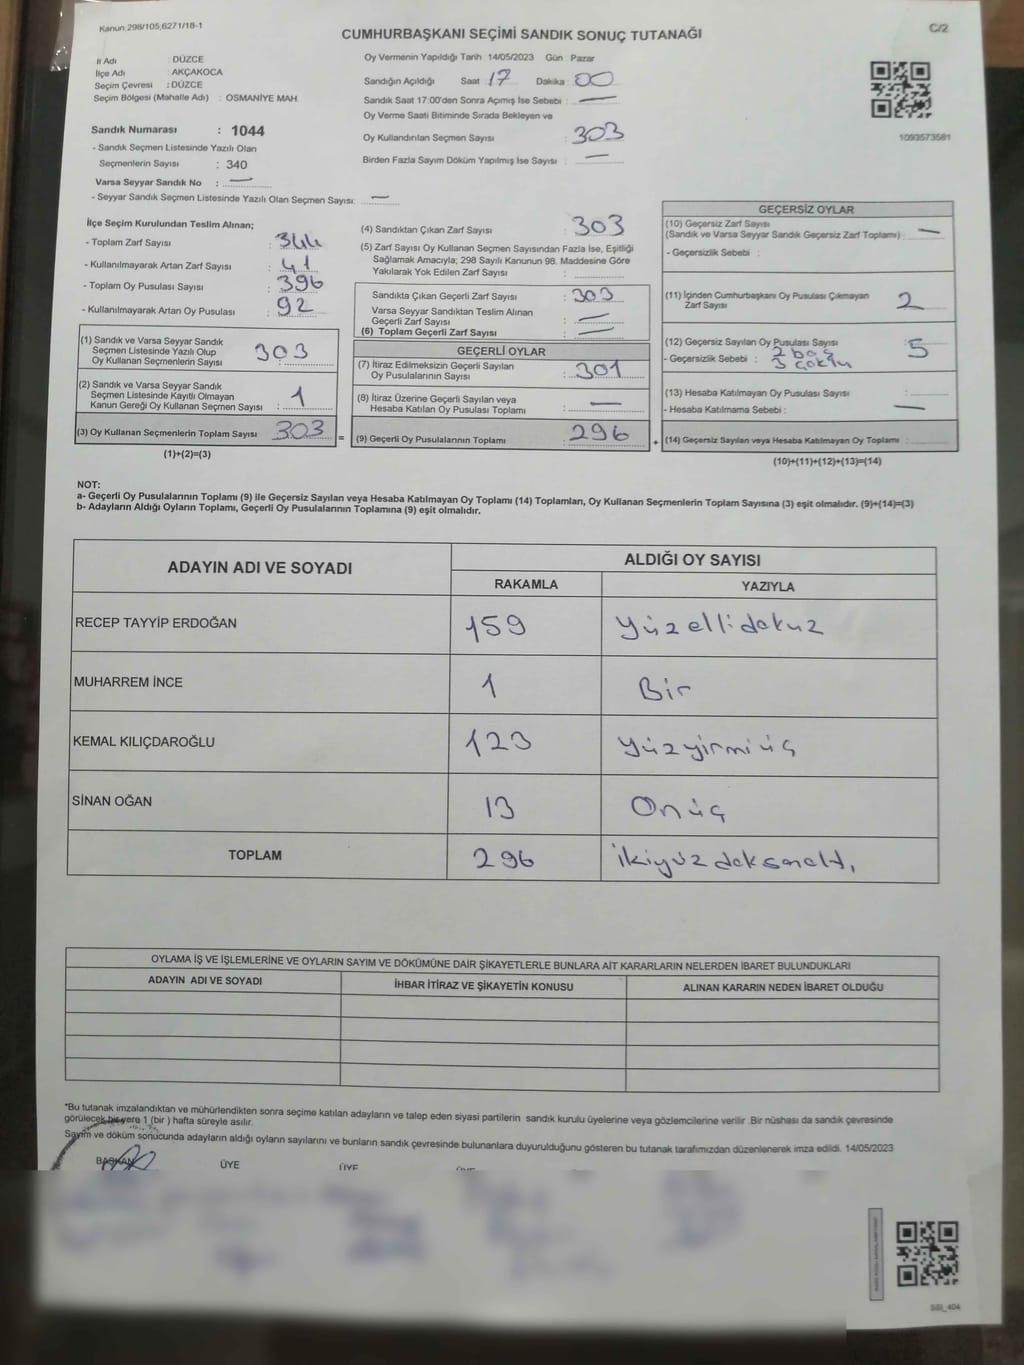 Kanun 298/105,6271/18-1
CUMHURBAŞKANI SEÇİMİ SANDIK SONUÇ TUTANAĞI
C/2
İl Adı : DÜZCE
İlçe Adı : AKÇAKOCA
Seçim Çevresi : DÜZCE
Seçim Bölgesi (Mahalle Adı) : OSMANİYE MAH.
Sandık Numarası : 1044
- Sandık Seçmen Listesinde Yazılı Olan
Seçmenlerin Sayısı : 340
Varsa Seyyar Sandık No : —
- Seyyar Sandık Seçmen Listesinde Yazılı Olan Seçmen Sayısı: —
Oy Vermenin Yapıldığı Tarih 14/05/2023 Gün Pazar
Sandığın Açıldığı Saat 17 Dakika : 00
Sandık Saat 17:00'den Sonra Açımış İse Sebebi : —
Oy Verme Saati Bitiminde Sırada Bekleyen ve
Oy Kullandırılan Seçmen Sayısı : 303
Birden Fazla Sayım Döküm Yapılmış İse Sayısı : —
1093573581
İlçe Seçim Kurulundan Teslim Alınan;
- Toplam Zarf Sayısı : 344
- Kullanılmayarak Artan Zarf Sayısı : 41
- Toplam Oy Pusulası Sayısı : 396
- Kullanılmayarak Artan Oy Pusulası : 92
(1) Sandık ve Varsa Seyyar Sandık
Seçmen Listesinde Yazılı Olup
Oy Kullanan Seçmenlerin Sayısı : 303
(2) Sandık ve Varsa Seyyar Sandık
Seçmen Listesinde Kayıtlı Olmayan
Kanun Gereği Oy Kullanan Seçmen Sayısı : 1
(3) Oy Kullanan Seçmenlerin Toplam Sayısı 303
(1)+(2)=(3)
(4) Sandıktan Çıkan Zarf Sayısı : 303
(5) Zarf Sayısı Oy Kullanan Seçmen Sayısından Fazla İse, Eşitliği
Sağlamak Amacıyla; 298 Sayılı Kanunun 98. Maddesine Göre
Yakılarak Yok Edilen Zarf Sayısı :
Sandıkta Çıkan Geçerli Zarf Sayısı : 303
Varsa Seyyar Sandıktan Teslim Alınan
Geçerli Zarf Sayısı : —
(6) Toplam Geçerli Zarf Sayısı : —
GEÇERLİ OYLAR
(7) İtiraz Edilmeksizin Geçerli Sayılan
Oy Pusulalarının Sayısı : 301
(8) İtiraz Üzerine Geçerli Sayılan veya
Hesaba Katılan Oy Pusulası Toplamı : —
= (9) Geçerli Oy Pusulalarının Toplamı : 296
GEÇERSİZ OYLAR
(10) Geçersiz Zarf Sayısı
(Sandık ve Varsa Seyyar Sandık Geçersiz Zarf Toplamı) : —
- Geçersizlik Sebebi :
(11) İçinden Cumhurbaşkanı Oy Pusulası Çıkmayan
Zarf Sayısı : 2
(12) Geçersiz Sayılan Oy Pusulası Sayısı : 5
- Geçersizlik Sebebi : 2 boş
3
(13) Hesaba Katılmayan Oy Pusulası Sayısı :
- Hesaba Katılmama Sebebi : —
+ (14) Geçersiz Sayılan veya Hesaba Katılmayan Oy Toplamı :
(10)+(11)+(12)+(13)=(14)
NOT:
a- Geçerli Oy Pusulalarının Toplamı (9) ile Geçersiz Sayılan veya Hesaba Katılmayan Oy Toplamı (14) Toplamları, Oy Kullanan Seçmenlerin Toplam Sayısına (3) eşit olmalıdır. (9)+(14)=(3)
b- Adayların Aldığı Oyların Toplamı, Geçerli Oy Pusulalarının Toplamına (9) eşit olmalıdır.
ADAYIN ADI VE SOYADI
ALDIĞI OY SAYISI
RAKAMLA YAZIYLA
RECEP TAYYİP ERDOĞAN 159 Yüzellidokuz
MUHARREM İNCE 1 Bir
KEMAL KILIÇDAROĞLU 123 Yüzyirmiüç
SİNAN OĞAN 13 Onüç
TOPLAM 296 İkiyüz doksanaltı
OYLAMA İŞ VE İŞLEMLERİNE VE OYLARIN SAYIM VE DÖKÜMÜNE DAİR ŞİKAYETLERLE BUNLARA AİT KARARLARIN NELERDEN İBARET BULUNDUKLARI
ADAYIN ADI VE SOYADI İHBAR İTİRAZ VE ŞİKAYETİN KONUSU ALINAN KARARIN NEDEN İBARET OLDUĞU
*Bu tutanak imzalandıktan ve mühürlendikten sonra seçime katılan adayların ve talep eden siyasi partilerin sandık kurulu üyelerine veya gözlemcilerine verilir. Bir nüshası da sandık çevresinde
görülecek bir yere 1 (bir ) hafta süreyle asılır.
Sayım ve döküm sonucunda adayların aldığı oyların sayılarını ve bunların sandık çevresinde bulunanlara duyurulduğunu gösteren bu tutanak tarafımızdan düzenlenerek imza edildi. 14/05/2023
BAŞKAN ÜYE ÜYE
SGİ_404